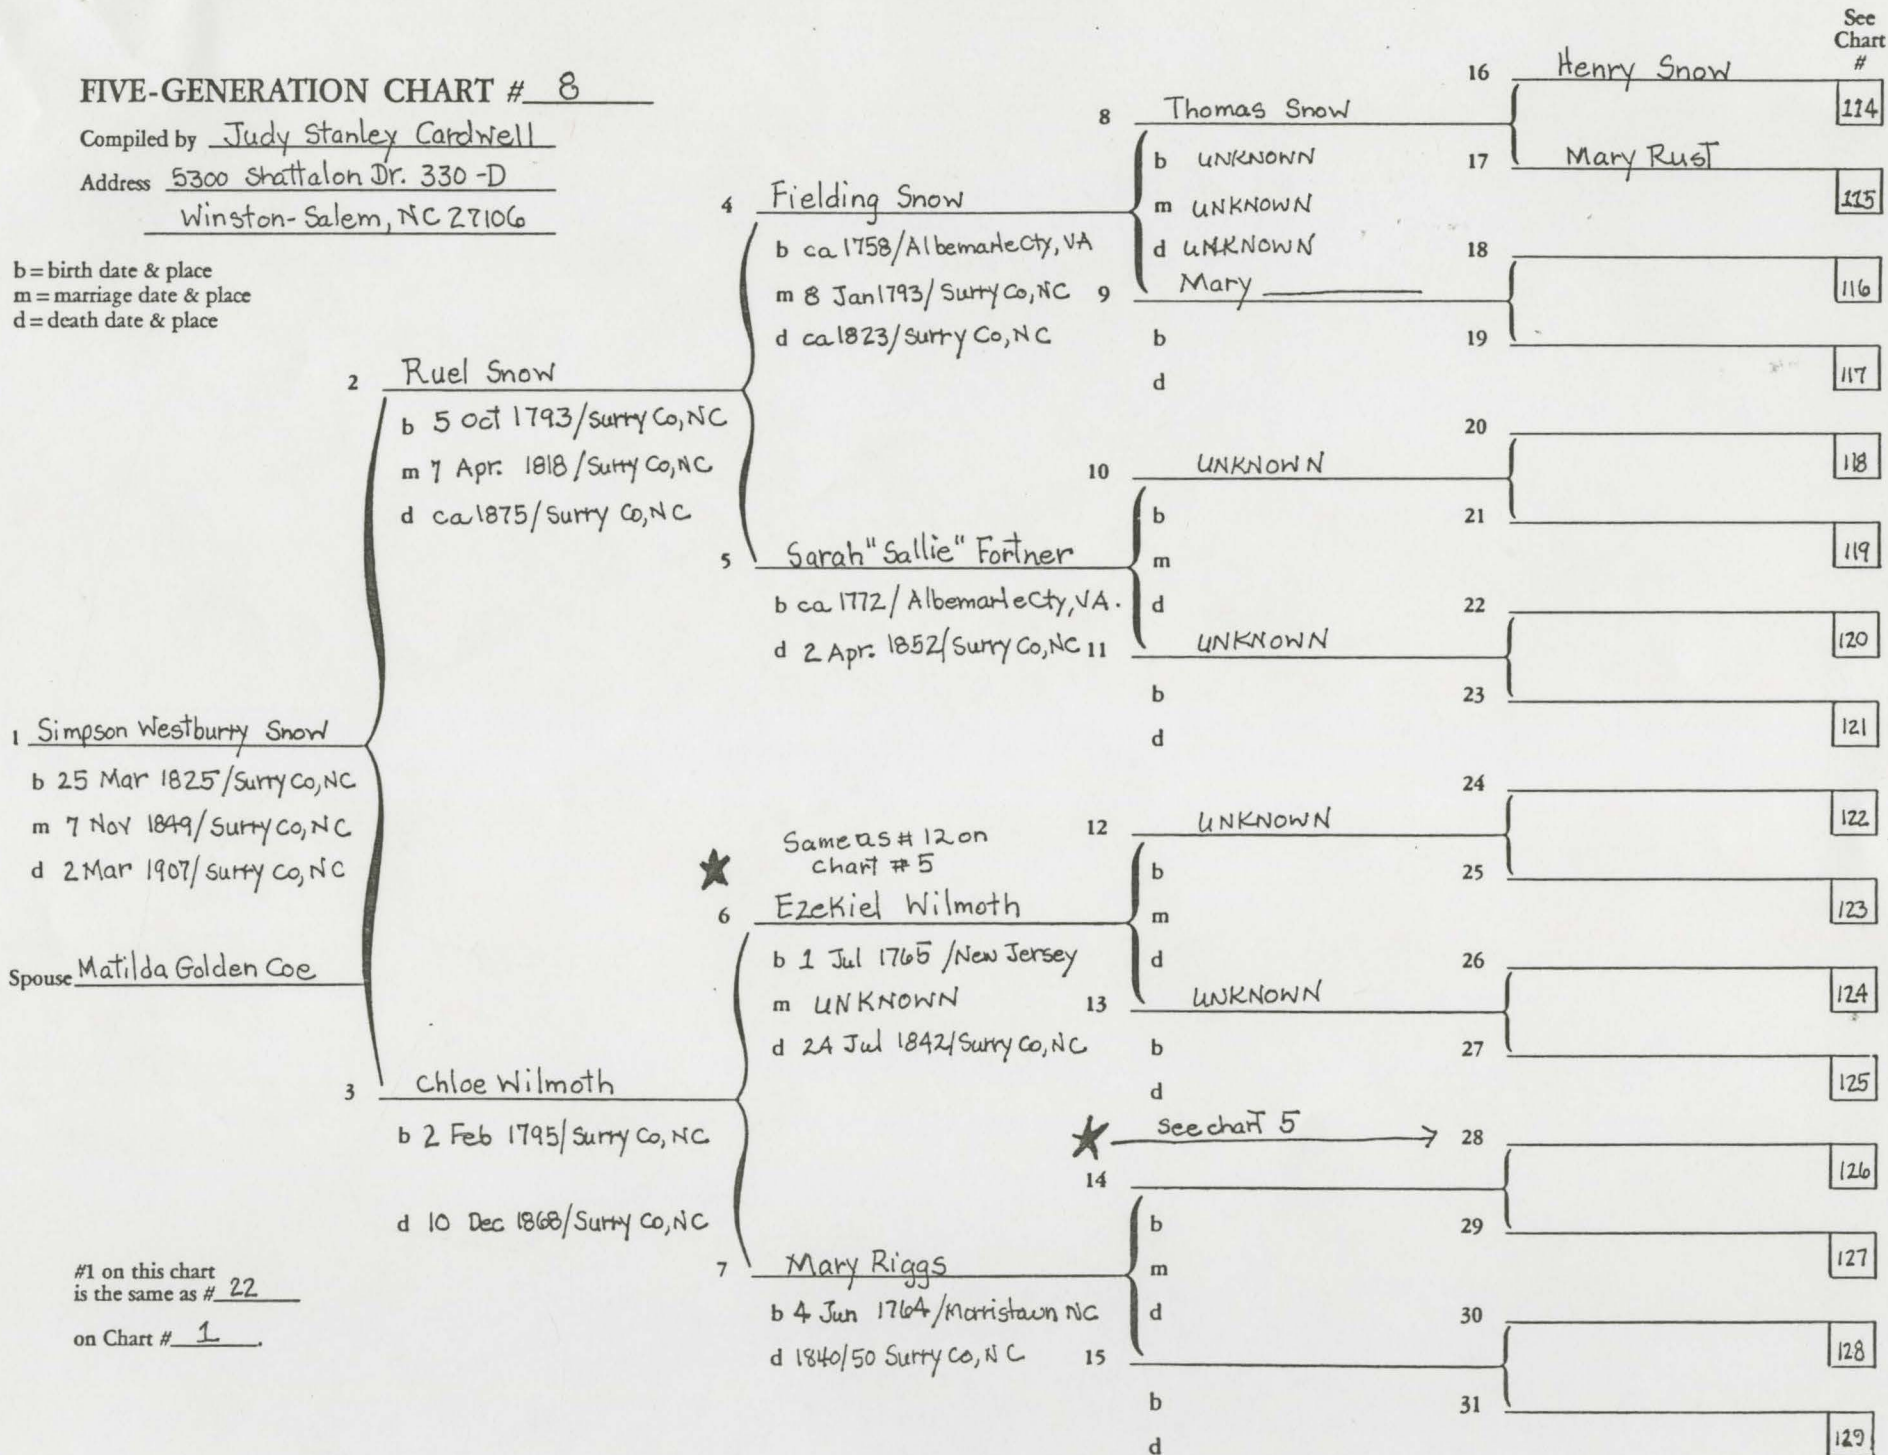 FIVE-GENERATION CHART # 8
Compiled by Judy Stanley Cardwell
Address 5300 Shattalon Dr. 330-D
Winston-Salem, NC 27106
b = birth date & place
m = marriage date & place
d = death date & place
1 Simpson Westburry Snow
b 25 Mar 1825/Surry Co, NC
m 7 Nov 1849/Surry Co, NC
d 2 Mar 1907/Surry Co, NC
Spouse Matilda Golden Coe
#1 on this chart
is the same as # 22
on Chart # 1.
2 Ruel Snow
b 5 Oct 1793/Surry Co, NC
m 7 Apr. 1818/Surry Co, NC
d ca 1875/Surry Co, NC
3 Chloe Wilmoth
b 2 Feb 1795/Surry Co, NC
d 10 Dec 1868/Surry Co, NC
4 Fielding Snow
b ca 1758/Albemarle Cty, VA
m 8 Jan 1793/Surry Co, NC
d ca 1823/Surry Co, NC
5 Sarah "Sallie" Fortner
b ca 1772/Albemarle Cty, VA.
d 2 Apr. 1852/Surry Co, NC
Same as # 12 on
Chart # 5
6 Ezekiel Wilmoth
b 1 Jul 1765/New Jersey
m UNKNOWN
d 24 Jul 1842/Surry Co, NC
7 Mary Riggs
b 4 Jun 1764/Morristown NC
d 1840/50 Surry Co, NC
8 Thomas Snow
b UNKNOWN
m UNKNOWN
d UNKNOWN
9 Mary
b
d
10 UNKNOWN
b
m
d
11 UNKNOWN
b
d
12 UNKNOWN
b
m
d
13 UNKNOWN
b
d
See chart 5
14
b
m
d
15
b
d
See
Chart
#
16 Henry Snow
114
17 Mary Rust
115
18
116
19
117
20
118
21
119
22
120
23
121
24
122
25
123
26
124
27
125
28
126
29
127
30
128
31
129